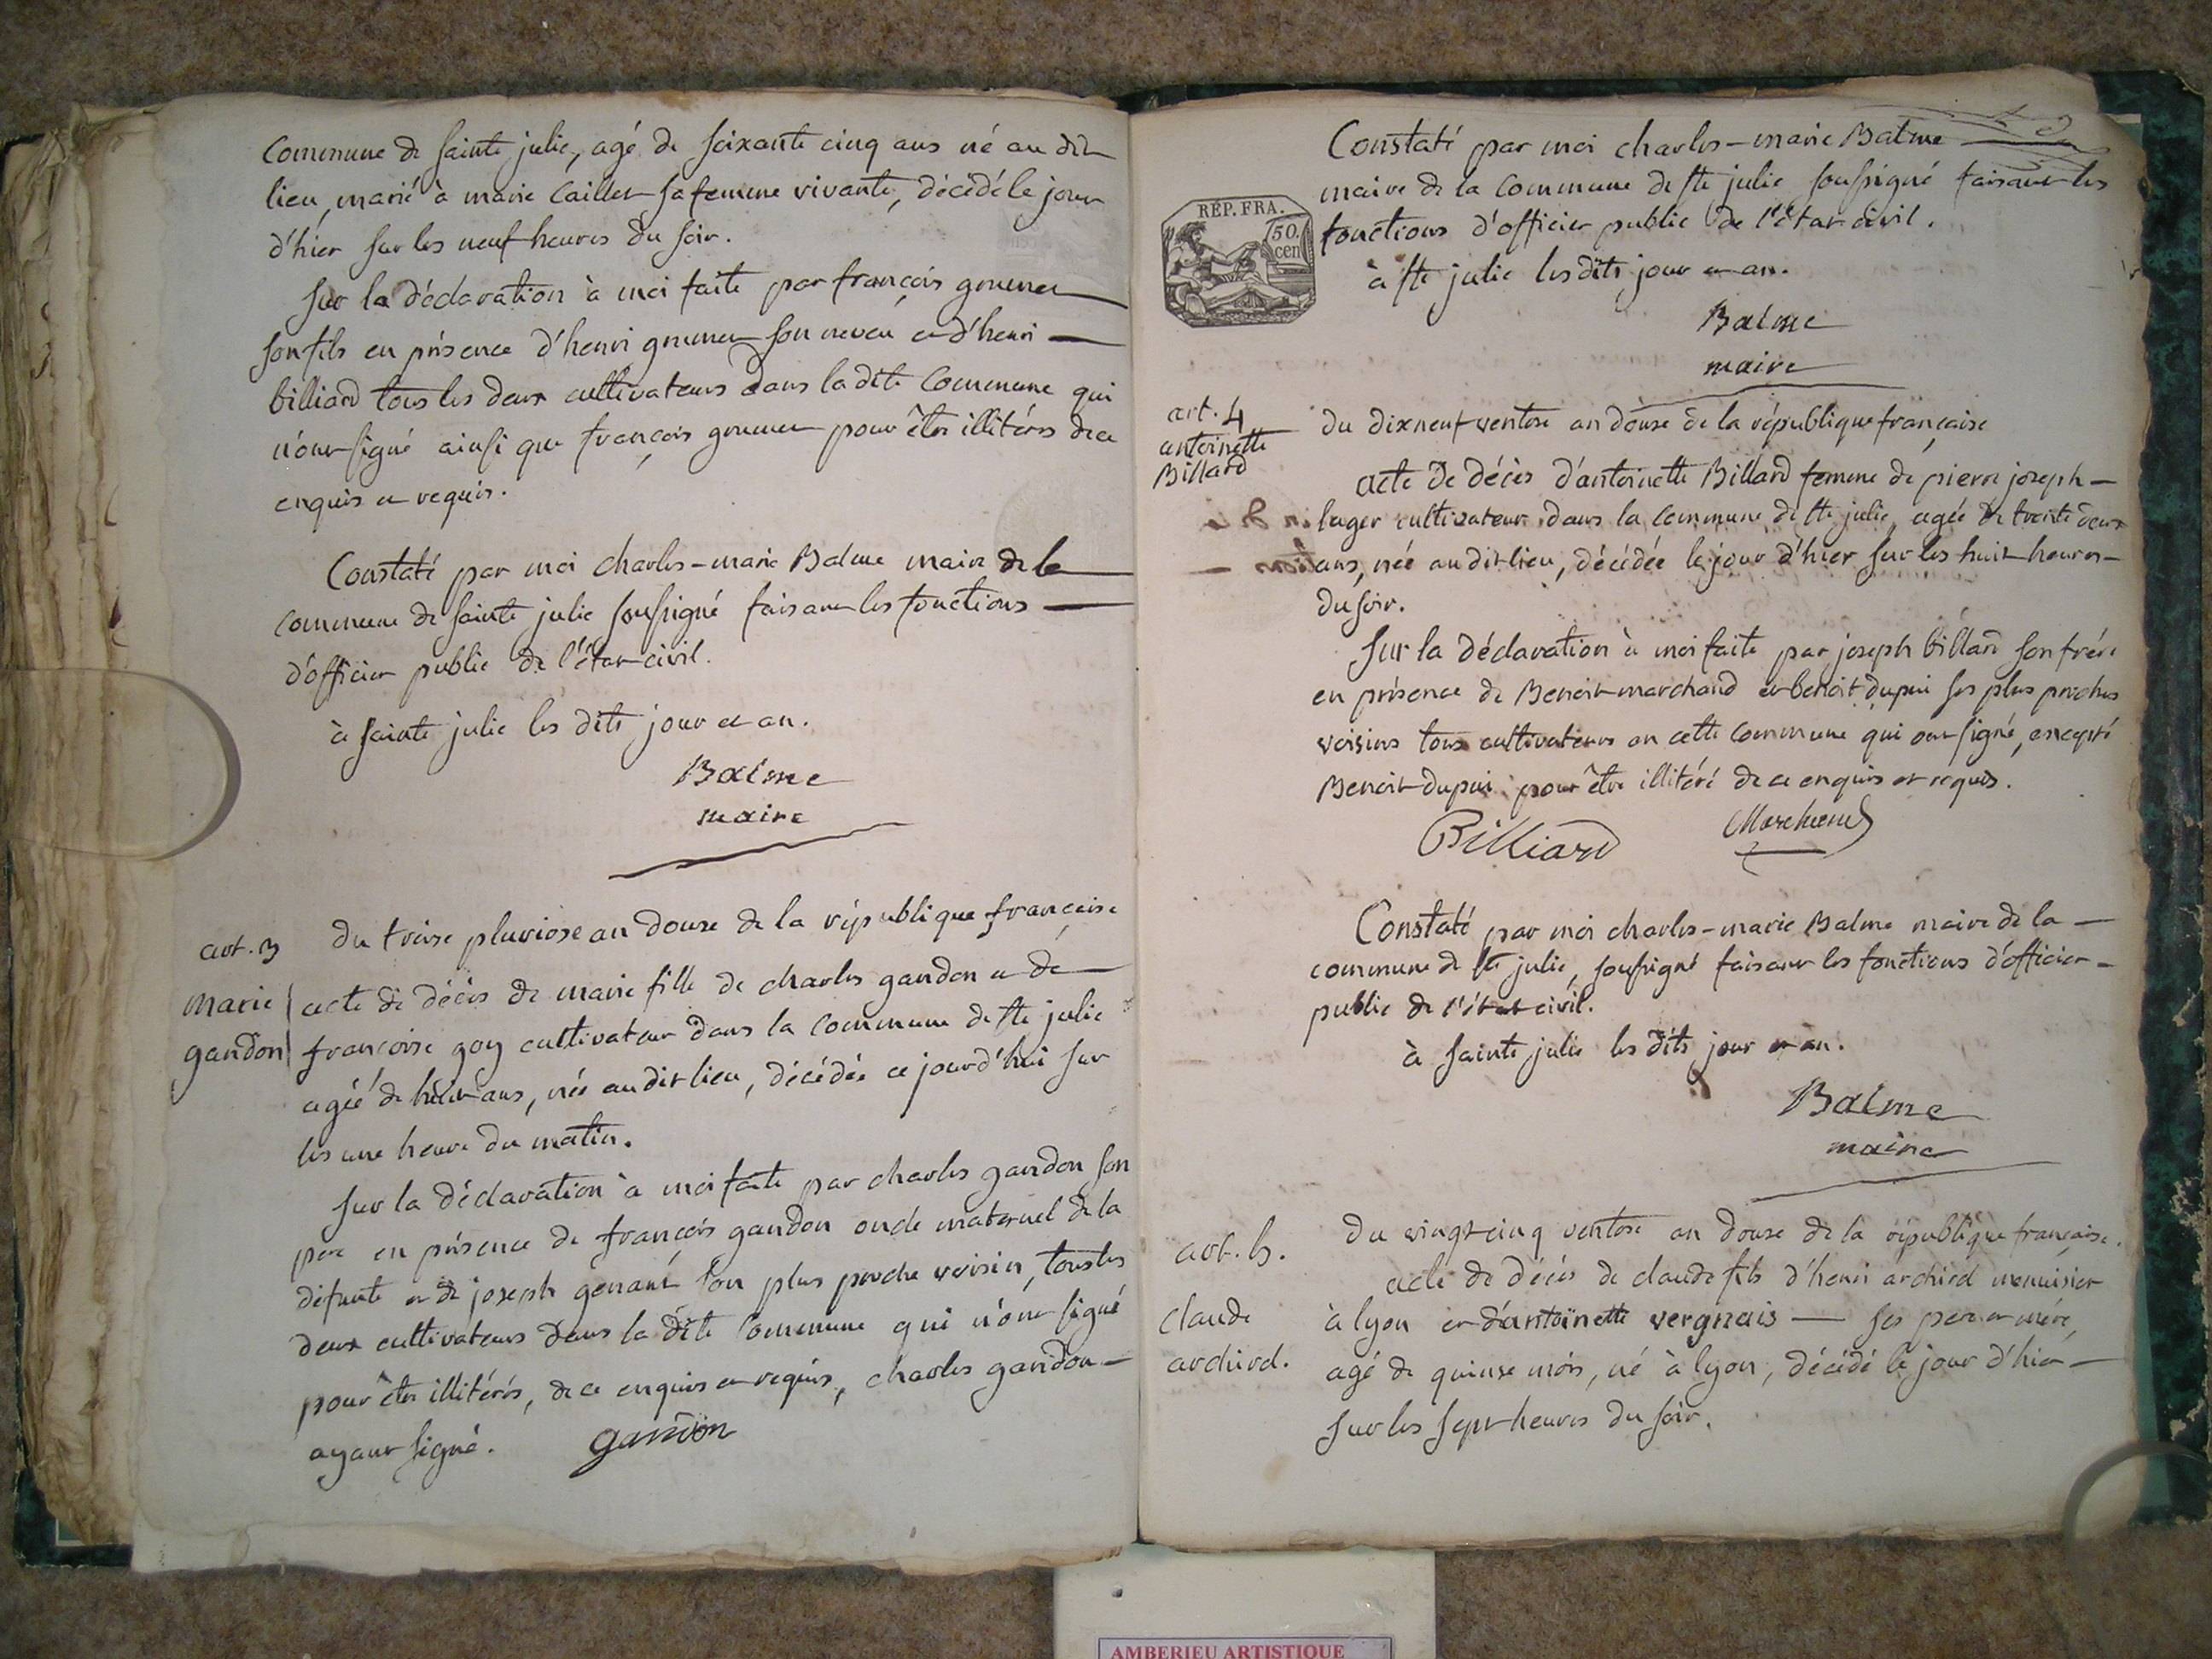 commune de sainte julie, agé de soixante cinq ans né au dit
lieu, marié à marie caillet sa femme vivante, décédé le jour
d'hier sur les neuf heures du soir.
sur la déclaration à moi faite par françois
son fils en présence d'henri son neveu et d'henri
billiard tous les deux cultivateurs dans la dite commune qui
n'ont signé ainsi que françois pour être illitérés de ce
enquis et requis.
Constaté par moi charles-marie Balme maire de la
commune de sainte julie soussigné faisant les fonctions
d'officier public de l'état civil.
à sainte julie les dits jour et an.
Balme
maire
art. 3
marie
gandon
du treise pluviose an douse de la république françaisе
acte de décès de marie fille de charles gandon et de
françoise goy cultivateur dans la commune de ste julie
agée de huit ans, née au dit lieu, décédée ce jourd'hui sur
les une heure du matin.
sur la déclaration à moi faite par charles gandon son
pere en présence de françois gandon oncle maternel de la
defunte et de joseph genant son plus proche voisin, tous les
deux cultivateurs dans la dite commune qui n'ont signé
pour être illitérés, de ce enquis et requis, charles gandon
ayant signé. gandon
RÉP. FRA.
50.
cen
Constaté par moi charles-marie Balme
maire de la commune de ste julie soussigné faisant les
fonctions d'officier public de l'état civil.
à ste julie les dits jour et an.
Balme
maire
art. 4
antoinette
Billard
du dixneuf ventose an douse de la république française
acte de décès d'antoinette Billard femme de pierre joseph
luger cultivateur dans la commune de ste julie, agée de trente deux
ans, née au dit lieu, décédée le jour d'hier sur les huit heures
du soir.
sur la déclaration à moi faite par joseph billard son frére
en présence de Benoit marchand et benoit dupui ses plus proches
voisins tous cultivateurs en cette commune qui ont signé, excepté
Benoit dupui pour être illitéré de ce enquis et requis.
Billiard Marchand
Constaté par moi charles-marie Balme maire de la
commune de ste julie, soussigné faisant les fonctions d'officier
public de l'état civil.
à sainte julie les dits jour et an.
Balme
maire
art. 5.
claude
archird.
du vingt cinq ventose an douse de la république française.
acte de décès de claude fils d'henri archird menuisier
à lyon et d'antoinette vergnais ses pere et mére,
agé de quinse mois, né à lyon, décédé le jour d'hier
sur les sept heures du soir.
AMBERIEU ARTISTIQUE